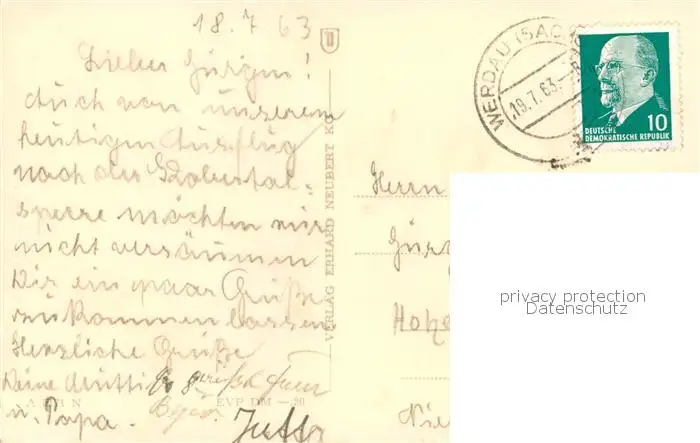 18.7.63
Lieber Jürgen!
Auch von unserem
heutigen Ausflug
nach der
sperre möchten wir
nicht versäumen
Dir ein paar Grüße
zukommen lassen
Herzliche Grüße
Deine Mutti
u. Papa.
Jutta
EVP DM —.20
VERLAG ERHARD NEUBERT KG
WERDAU (SACHS)
19.7.63
10
DEUTSCHE
DEMOKRATISCHE REPUBLIK
Herrn
privacy protection
Datenschutz